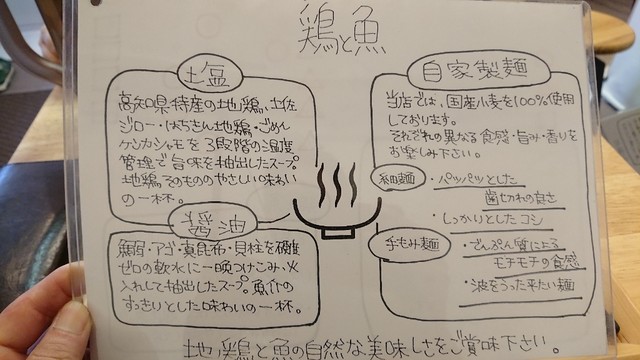 鶏と魚
塩
高知県特産の地鶏、土佐
ジロー・はちきん地鶏・ごめん
ケンカシャモを3段階の温度
管理で旨味を抽出したスープ。
地鶏そのもののやさしい味わい
の一杯。
醤油
魚節・アゴ・真昆布・貝柱を硬度
ゼロの軟水に一晩つけこみ、火
入れして抽出したスープ。魚介の
すっきりとした味わいの一杯。
自家製麺
当店では、国産小麦を100%使用
しております。
それぞれの異なる食感・旨み・香りを
お楽しみ下さい。
細麺
・パッパッとした
歯切れの良さ
・しっかりとしたコシ
手もみ麺
・でんぷん質による
モチモチの食感
・波をうった平たい麺
地鶏と魚の自然な美味しさをご賞味下さい。